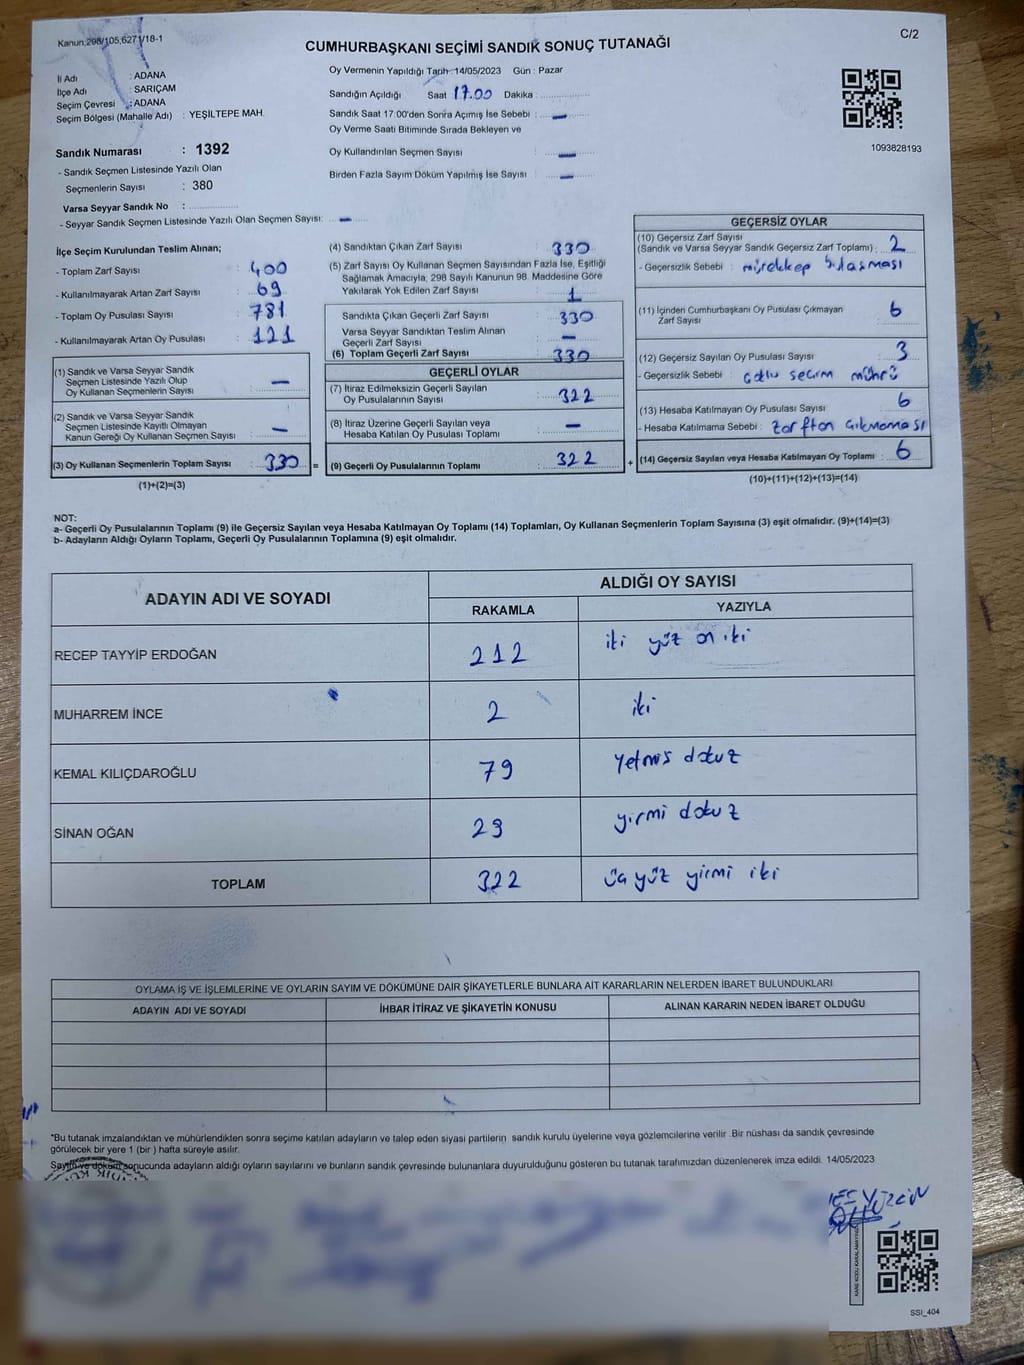 Kanun:298/105,6271/18-1
C/2
CUMHURBAŞKANI SEÇİMİ SANDIK SONUÇ TUTANAĞI
İl Adı : ADANA
İlçe Adı : SARIÇAM
Seçim Çevresi : ADANA
Seçim Bölgesi (Mahalle Adı) : YEŞİLTEPE MAH.
Sandık Numarası : 1392
- Sandık Seçmen Listesinde Yazılı Olan
Seçmenlerin Sayısı : 380
Varsa Seyyar Sandık No :
- Seyyar Sandık Seçmen Listesinde Yazılı Olan Seçmen Sayısı: -
Oy Vermenin Yapıldığı Tarih: 14/05/2023 Gün : Pazar
Sandığın Açıldığı Saat 17.00 Dakika :
Sandık Saat 17:00'den Sonra Açımış İse Sebebi : -
Oy Verme Saati Bitiminde Sırada Bekleyen ve
Oy Kullandırılan Seçmen Sayısı : -
Birden Fazla Sayım Döküm Yapılmış İse Sayısı : -
1093828193
İlçe Seçim Kurulundan Teslim Alınan;
- Toplam Zarf Sayısı : 400
- Kullanılmayarak Artan Zarf Sayısı : 69
- Toplam Oy Pusulası Sayısı : 781
- Kullanılmayarak Artan Oy Pusulası : 121
(1) Sandık ve Varsa Seyyar Sandık
Seçmen Listesinde Yazılı Olup
Oy Kullanan Seçmenlerin Sayısı : -
(2) Sandık ve Varsa Seyyar Sandık
Seçmen Listesinde Kayıtlı Olmayan
Kanun Gereği Oy Kullanan Seçmen Sayısı : -
(3) Oy Kullanan Seçmenlerin Toplam Sayısı : 330 =
(1)+(2)=(3)
(4) Sandıktan Çıkan Zarf Sayısı : 330
(5) Zarf Sayısı Oy Kullanan Seçmen Sayısından Fazla İse, Eşitliği
Sağlamak Amacıyla, 298 Sayılı Kanunun 98. Maddesine Göre
Yakılarak Yok Edilen Zarf Sayısı : 1
Sandıkta Çıkan Geçerli Zarf Sayısı : 330
Varsa Seyyar Sandıktan Teslim Alınan
Geçerli Zarf Sayısı : -
(6) Toplam Geçerli Zarf Sayısı : 330
GEÇERLİ OYLAR
(7) İtiraz Edilmeksizin Geçerli Sayılan
Oy Pusulalarının Sayısı : 322
(8) İtiraz Üzerine Geçerli Sayılan veya
Hesaba Katılan Oy Pusulası Toplamı : -
(9) Geçerli Oy Pusulalarının Toplamı : 322 +
GEÇERSİZ OYLAR
(10) Geçersiz Zarf Sayısı
(Sandık ve Varsa Seyyar Sandık Geçersiz Zarf Toplamı) : 2
- Geçersizlik Sebebi : mürekkep bulaşması
(11) İçinden Cumhurbaşkanı Oy Pusulası Çıkmayan
Zarf Sayısı : 6
(12) Geçersiz Sayılan Oy Pusulası Sayısı : 3
- Geçersizlik Sebebi : çoklu seçim mührü
(13) Hesaba Katılmayan Oy Pusulası Sayısı : 6
- Hesaba Katılmama Sebebi : Zarftan çıkmaması
(14) Geçersiz Sayılan veya Hesaba Katılmayan Oy Toplamı : 6
(10)+(11)+(12)+(13)=(14)
NOT:
a- Geçerli Oy Pusulalarının Toplamı (9) ile Geçersiz Sayılan veya Hesaba Katılmayan Oy Toplamı (14) Toplamları, Oy Kullanan Seçmenlerin Toplam Sayısına (3) eşit olmalıdır. (9)+(14)=(3)
b- Adayların Aldığı Oyların Toplamı, Geçerli Oy Pusulalarının Toplamına (9) eşit olmalıdır.
ADAYIN ADI VE SOYADI
ALDIĞI OY SAYISI
RAKAMLA YAZIYLA
RECEP TAYYİP ERDOĞAN 212 iki yüz on iki
MUHARREM İNCE 2 iki
KEMAL KILIÇDAROĞLU 79 Yetmiş dokuz
SİNAN OĞAN 29 yirmi dokuz
TOPLAM 322 üç yüz yirmi iki
OYLAMA İŞ VE İŞLEMLERİNE VE OYLARIN SAYIM VE DÖKÜMÜNE DAİR ŞİKAYETLERLE BUNLARA AİT KARARLARIN NELERDEN İBARET BULUNDUKLARI
ADAYIN ADI VE SOYADI İHBAR İTİRAZ VE ŞİKAYETİN KONUSU ALINAN KARARIN NEDEN İBARET OLDUĞU
*Bu tutanak imzalandıktan ve mühürlendikten sonra seçime katılan adayların ve talep eden siyasi partilerin sandık kurulu üyelerine veya gözlemcilerine verilir .Bir nüshası da sandık çevresinde
görülecek bir yere 1 (bir ) hafta süreyle asılır.
Sayım ve döküm sonucunda adayların aldığı oyların sayılarını ve bunların sandık çevresinde bulunanlara duyurulduğunu gösteren bu tutanak tarafımızdan düzenlenerek imza edildi. 14/05/2023
SSI_404